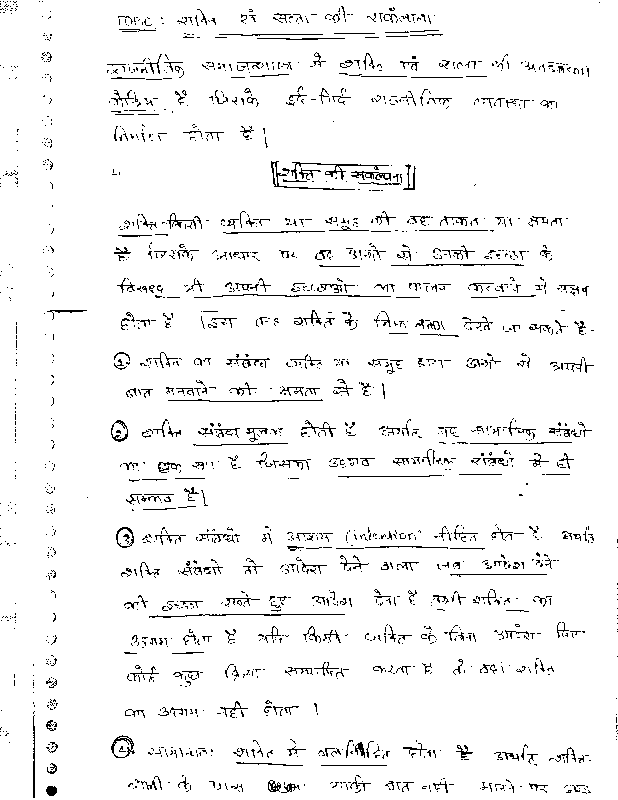 TOPIC : शक्ति एवं सत्ता की संकल्पना
राजनीतिक समाजशास्त्र में शक्ति एवं सत्ता की अवधारणा
केन्द्रिय है जिसके इर्द-गिर्द राजनीतिक व्यवस्था का
निर्माण होता है।
शक्ति की संकल्पना
शक्ति किसी व्यक्ति या समूह की वह ताकत या क्षमता
है जिसके आधार पर वह अन्यों से उनकी इच्छा के
विरुद्ध भी अपनी इच्छाओं का पालन करवाने में सक्षम
होता है इस तरह शक्ति के निम्न लक्षण देखे जा सकते है-
① शक्ति का संबंध व्यक्ति या समूह द्वारा अन्यों से अपनी
बात मनवाने की क्षमता से है।
② शक्ति संबंध मूलक होती है अर्थात् यह सामाजिक संबंधों
का एक रूप है जिसका उद्भव सामाजिक संबंधों में ही
सम्भव है।
③ शक्ति संबंधों में आशय (intention) नीहित होता है अर्थात्
शक्ति संबंधों में आदेश देने वाला जब आदेश देने
की इच्छा रखते हुए आदेश देता है तभी शक्ति का
उद्गम होता है यदि किसी व्यक्ति के बिना आदेश दिए
कोई कुछ क्रिया सम्पादित करता है तो वहां शक्ति
का उद्गम नही होता ।
④ सामान्यतः शक्ति में बल निहित होता है अर्थात् शक्ति-
शाली के पास उसकी बात नहीं मानने पर